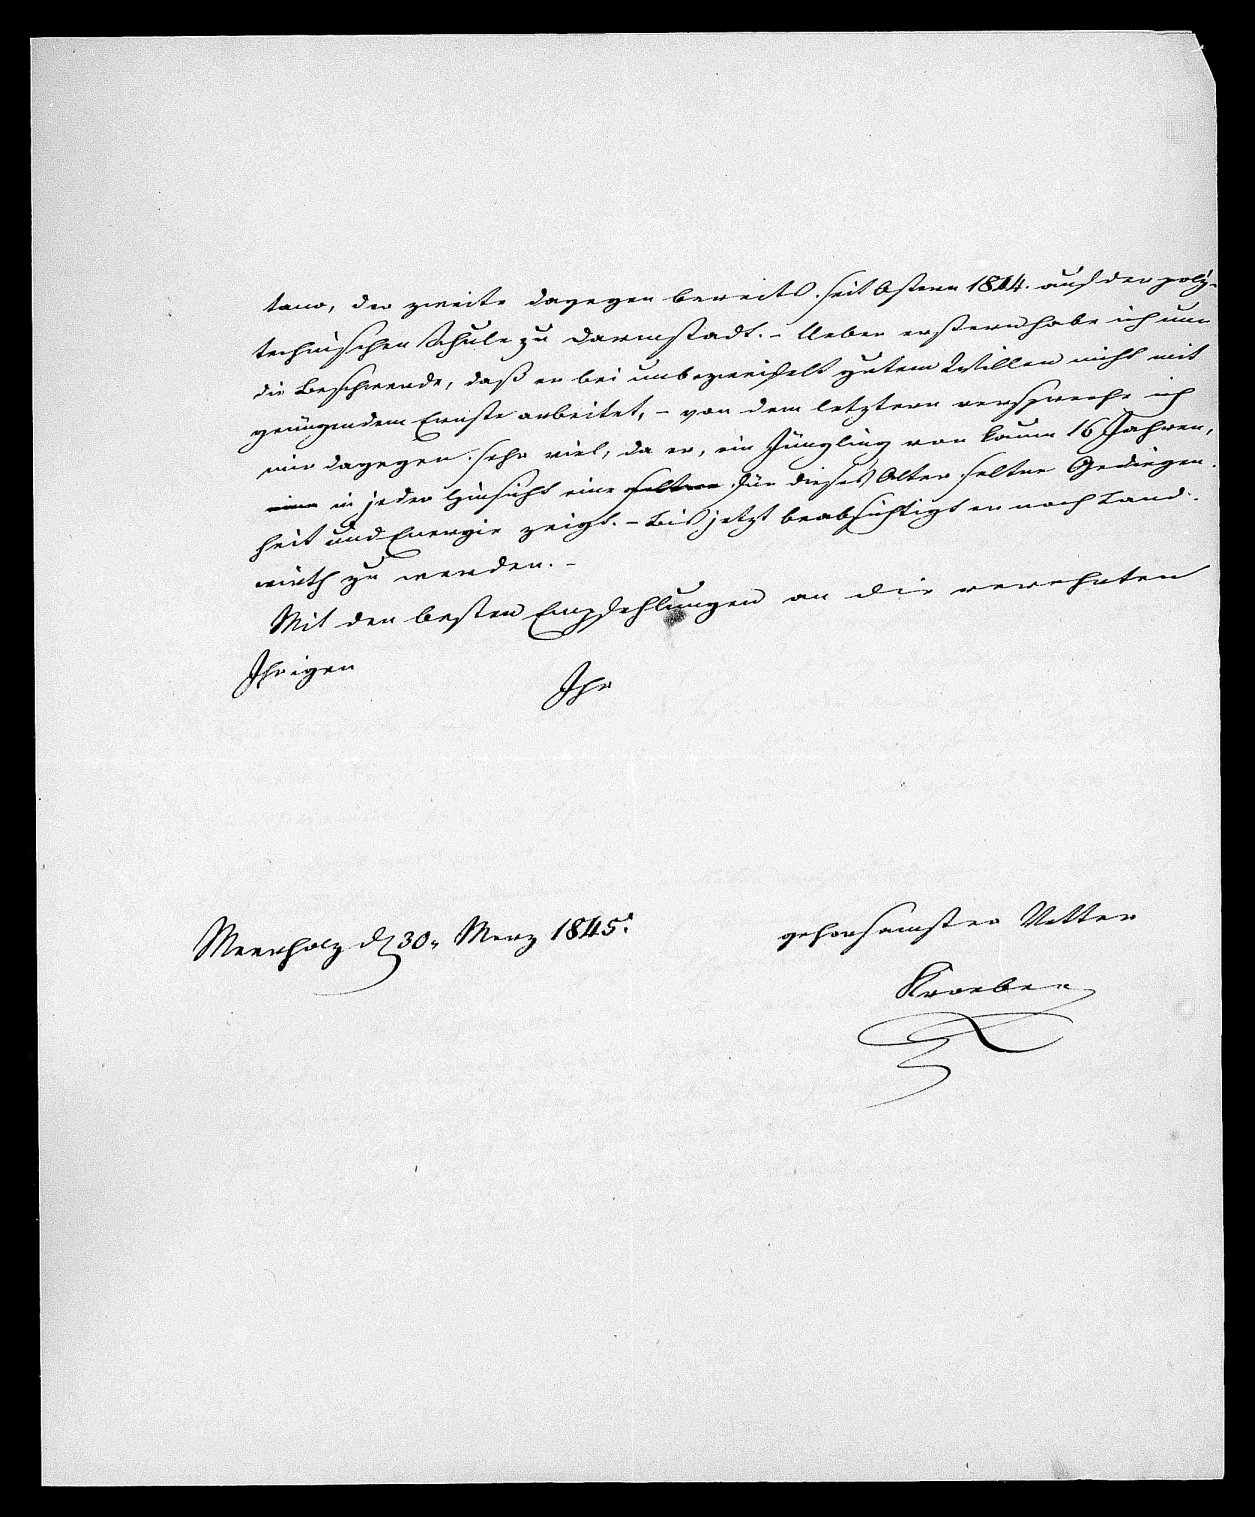 tano, der zweite dagegen bereits seit Ostern 1844. auf der poly-
technischen Schule zu Darmstadt. – Ueber erstern habe ich nur
die Beschwerde, daß er bei unbezweifelt gutem Willen nicht mit
genügendem Ernste arbeitet, – von dem letztern verspreche ich
mir dagegen sehr viel, da er, ein Jüngling von kaum 16 Jahren,
in jeder Hinsicht eine seltene für dieses Alter seltne Gediegen-
heit und Energie zeigt. – Bis jetzt beabsichtigt er noch Land-
wirth zu werden. –
Mit den besten Empfehlungen an die verehrten
Ihrigen
Ihr
gehorsamster Vetter
Meerholz d. 30. Merz 1845.
Kroeber